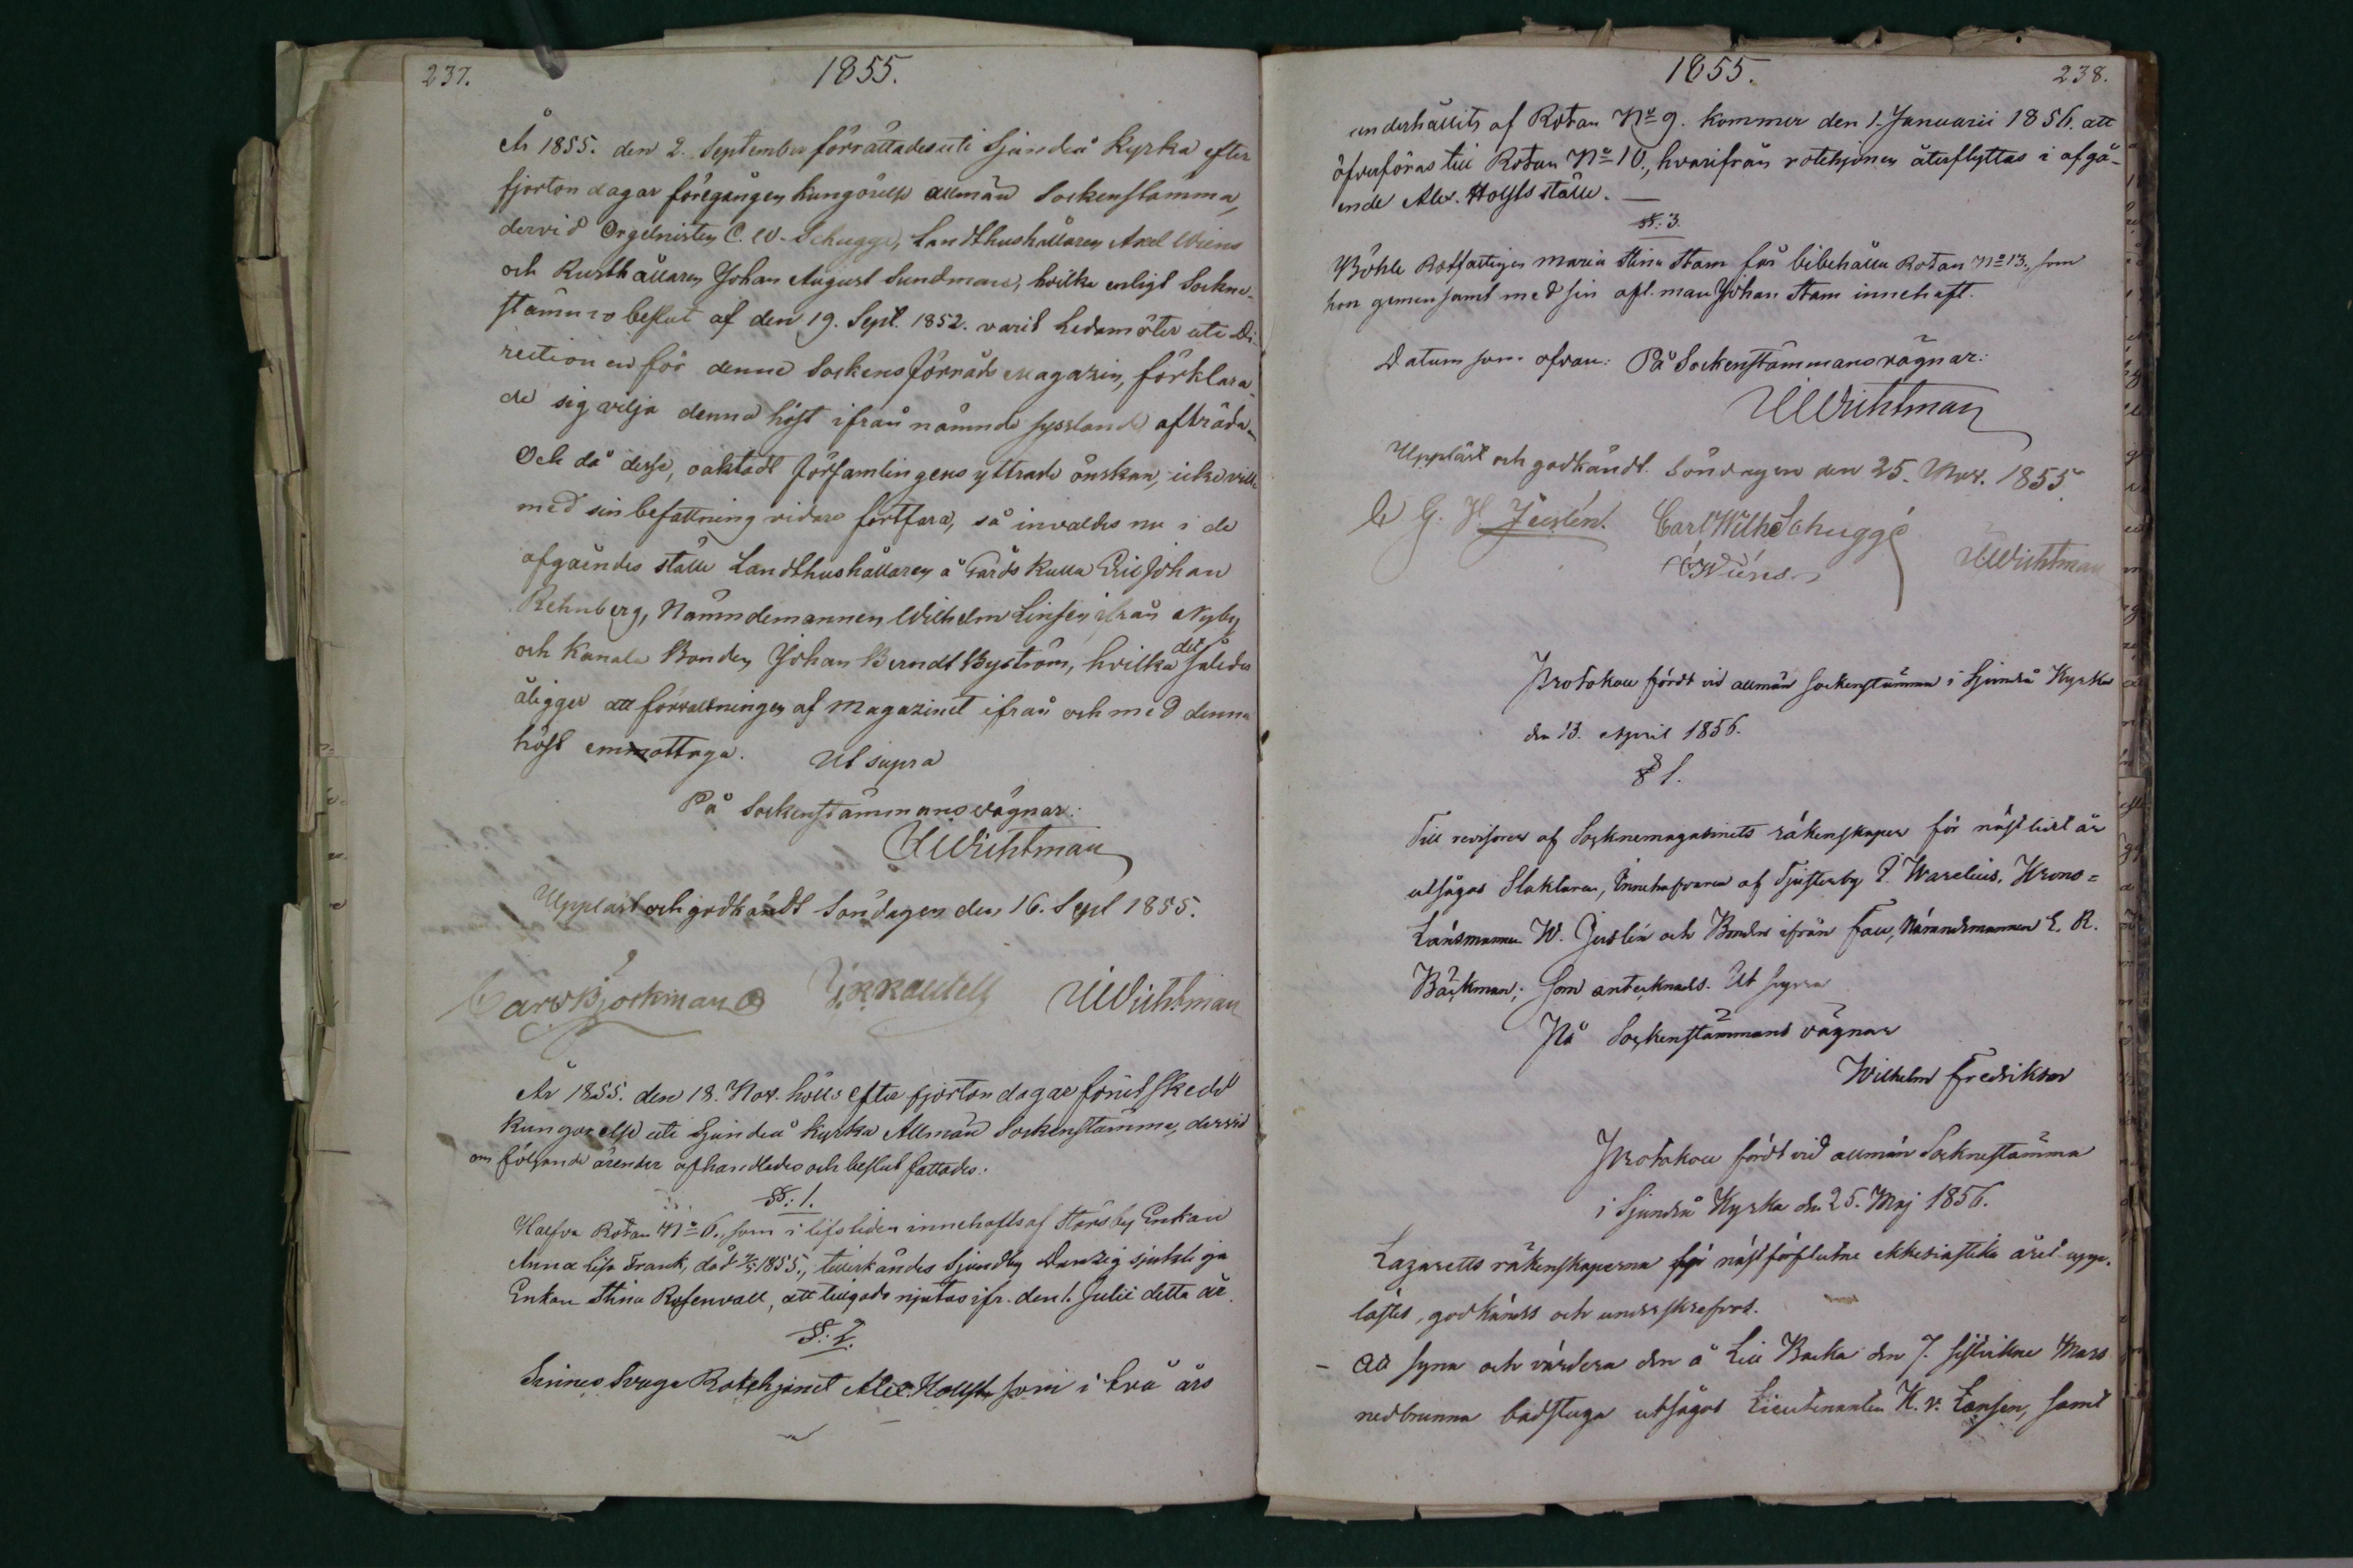 237.
1855.
År 1855. den 2. September förrättades uti Sjundeå Kyrka efter
fjorton dagar föregången kungörelse allmän Sockenstämma,
dervid Orgelnisten C. W. Schugge, Landthushållaren Axel Wiens
och Rusthållaren Johan August Sundman, hvilka enligt Sockne-
stämmo beslut af den 19. Sept. 1852. varit Ledamöter uti Di-
rectionen för denne Sockens Förråds Magazin, förklara-
de sig vilja denna höst ifrån nämnde sysslande afträda.
Och då desse, oaktadt Församlingens yttrade önskan, icke ville
med sin befattning vidare fortfara, så invaldes nu i de
afgåendes ställe Landthushållaren å Gårds Kulla Eric Johan
Rehnberg, Nämndemannen Wilhelm Linsén ifrån Nyby
och Kanala Bonden Johan Berndt Byström, hvilka det således
åligger att förvaltningen af Magazinet ifrån och med denna
höst emmottaga. Ut supra
På Sockenstämmans vägnar:
Wichtman
Uppläst och godkändt Söndagen den 16. Sept 1855.
Carl Björkman Wichtman
År 1855. den 18. Nov. hölls efter fjorton dagar förut skedd
kungörelse uti Sjundeå Kyrka Allmän Sockenstämma, dervid
om följande ärender afhandlades och beslut fattades:
§§. 1.
Halfva Rotan No 6., som i lifstiden innehafts af Störsby Enkan
Anna Lisa Frank, död 1855., tillerkändes Sjundby Danzig sjukliga
Enkan Stina Rosenvall, att tillgodo njutas ifr. den 1. Julii detta år.
§. 2.
Sinnes Svaga Rotehjonet Alex. Holfts som i två års
1855.
238.
underhållits af Rotan No 9. kommer den 1. Januarii 1856. att
öfverföras till Rotan No 10., hvarifrån rotehjonen återflyttas i afgå-
ende Alex. Holfts ställe. —
§§. 3.
Böhle Rotfattigen Maria Stina Stam får bibehålla Rotan No 13., som
hon gemensamt med sin afl. man Johan Stam innehaft.
Datum som ofvan: På Sockenstämmans vägnar:
Wichtman
Uppläst och godkändt Söndagen den 25. Nov. 1855.
G. H. Juslén. Carl Wilh Schuggé
Wiens Wichtman
Protokoll fördt vid allmän sockenstämma i Sjundeå Kyrka
den 13. April 1856.
§ 1.
Till revisorer af Socknemagasinets räkenskaper för nästlidit år
utsågos Slaktaren, Innehafvaren af Tjusterby Warelius, Krono=
Länsmannen W. Juslén och Bonden ifrån Fall, Nämndemannen E. R.
Bäckman; som antecknads. Ut supra
På Sockenstämmans vägnar
Wilhelm Fredrikson
Protokoll fördt vid allmän Socknestämma
i Sjundeå Kyrka den 25. Maj 1856.
Lazaretts räkenskaperna för nästförflutne ekklesiastika året upp-
lästes, godkändes och underskrefvos.
- Att syna och värdera den å Lill Backa den 7. sistlidne Mars
nedbrunna badstuga utsågos Lieutenanten K. v. Essen, samt